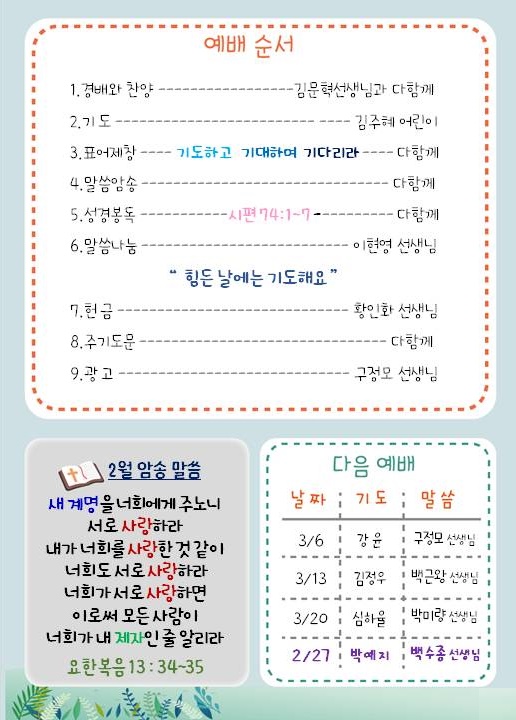 예배 순서
1.경배와 찬양 ----------------- 김문혁선생님과 다함께
2.기 도 ----------------------------- 김주혜 어린이
3.표어제창 ---- 기도하고 기대하며 기다리라 ---- 다함께
4.말씀암송 ------------------------------- 다함께
5.성경봉독 ----------- 시편74:1~7 ---------- 다함께
6.말씀나눔 -------------------------- 이현영 선생님
“ 힘든 날에는 기도해요 ”
7.헌 금 ----------------------------- 황인화 선생님
8.주기도문 ------------------------------- 다함께
9.광 고 ----------------------------- 구정모 선생님
2월 암송 말씀
새 계명을 너희에게 주노니
서로 사랑하라
내가 너희를 사랑한 것 같이
너희도 서로 사랑하라
너희가 서로 사랑하면
이로써 모든 사람이
너희가 내 제자인 줄 알리라
요한복음 13 : 34~35
다음 예배
날 짜 기 도 말 씀
3/6 강 윤 구정모 선생님
3/13 김정우 백근왕 선생님
3/20 심하율 박미량 선생님
2/27 박예지 백수종 선생님